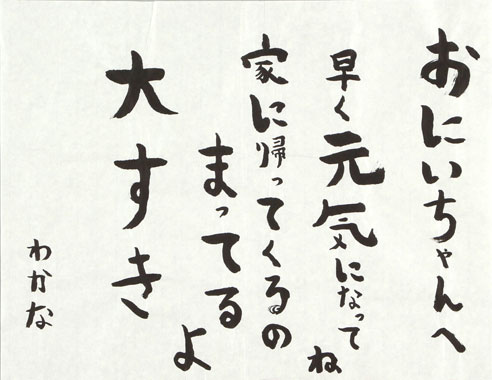 おにいちゃんへ
早く元気になってね
家に帰ってくるの
まってるよ
大すき
わかな